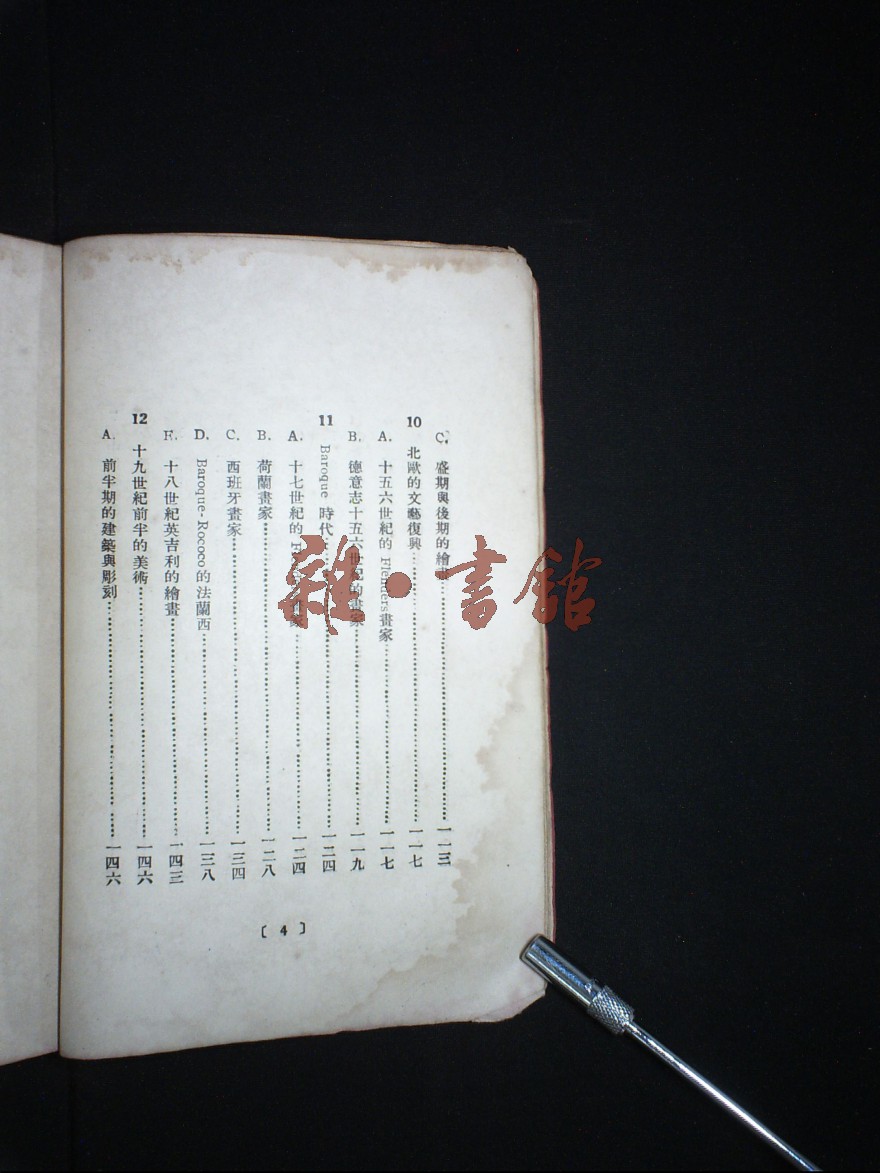 C. 盛期與後期的繪……一一三
10 北歐的文藝復興……一一七
A. 十五六世紀的 Flemders 畫家……一一七
B. 德意志十五六世紀的畫家……一一九
11 Baroque 時代……一二四
A. 十七世紀的 畫家……一二四
B. 荷蘭畫家……一二八
C. 西班牙畫家……一三四
D. Baroque-Rococo 的法蘭西……一三八
E. 十八世紀英吉利的繪畫……一四三
12 十九世紀前半的美術……一四六
A. 前半期的建築與彫刻……一四六
〔 4 〕
雜·書館